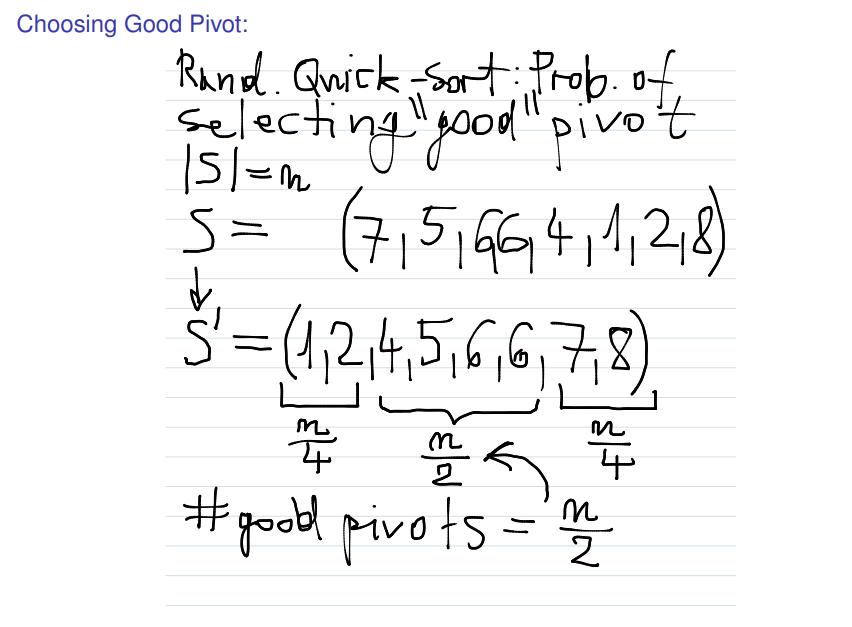 Choosing Good Pivot:
Rand. Quick-Sort: Prob. of
selecting "good" pivot
|S| = n
S = (7, 5, 6 6, 4, 1, 2, 8)
↓
S' = (1, 2, 4, 5, 6, 6, 7, 8)
n/4 n/2 n/4
# good pivots = n/2